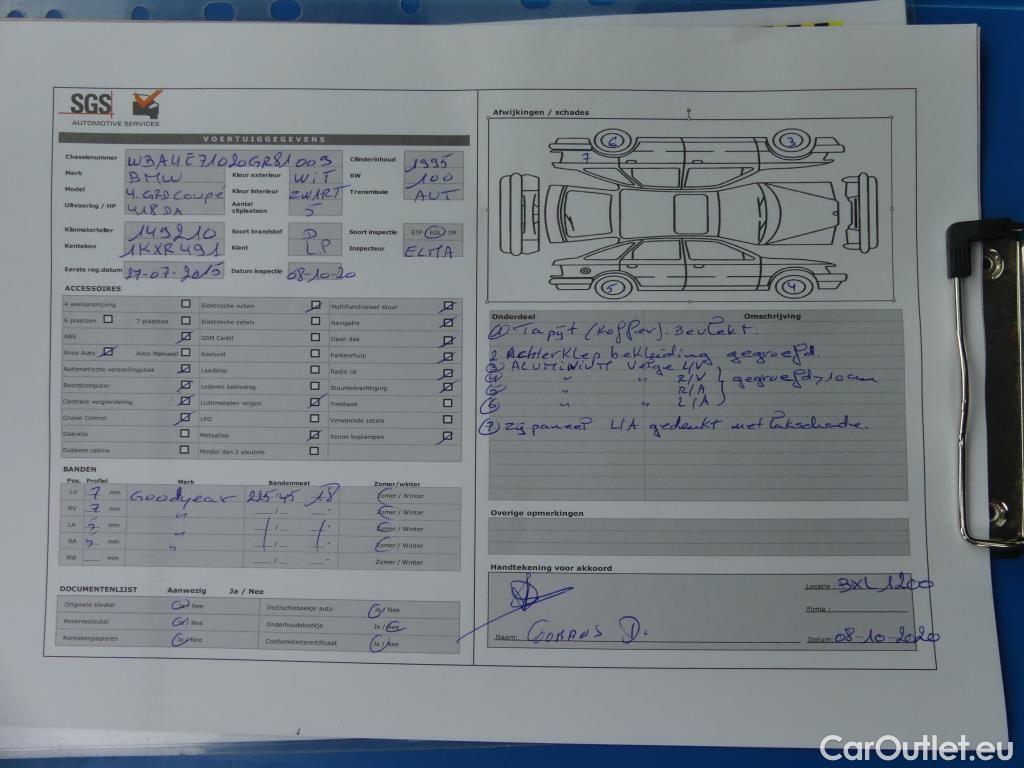 SGS
AUTOMOTIVE SERVICES
VOERTUIGGEGEVENS
Chassisnummer WBA4E71020GR81009 Cilinderinhoud 1995
Merk BMW Kleur exterieur WIT KW 100
Model 4.GRD Coupé Kleur interieur ZWART Transmissie AUT
Uitvoering / HP 418DA Aantal zitplaatsen 5
Kilometerteller 149210 Soort brandstof D Soort inspectie ETP EOL IM
Kenteken 1KXR491 Klant L.P Inspecteur ELMA
Eerste reg.datum 27-07-2015 Datum inspectie 08-10-20
ACCESSOIRES
4 wielaandrijving Elektrische ruiten Multifunctioneel stuur
6 plaatsen 7 plaatsen Elektrische zetels Navigatie
ABS GSM Carkit Open dak
Airco Auto Airco Manueel Koelunit Parkeerhulp
Automatische versnellingsbak Laadklep Radio cd
Boordcomputer Lederen bekleding Stuurbekrachtiging
Centrale vergrendeling Lichtmetalen velgen Trekhaak
Cruise Control LPG Verwarmde zetels
Dakrails Metaallak Xenon koplampen
Dubbele cabine Minder dan 2 sleutels
BANDEN
Pos. Profiel Merk Bandenmaat Zomer/winter
LV 7 mm Goodyear 225/45 18 Zomer / Winter
RV 7 mm " Zomer / Winter
LA 7 mm " Zomer / Winter
RA 7 mm " Zomer / Winter
RW mm Zomer / Winter
DOCUMENTENLIJST Aanwezig Ja / Nee
Originele sleutel Ja / Nee Instructieboekje auto Ja / Nee
Reservesleutel Ja / Nee Onderhoudsboekje Ja / Nee
Kentekenpapieren Ja / Nee Conformiteitscertificaat Ja / Nee
Afwijkingen / schades
6 3
7
5 4
Onderdeel Omschrijving
1 Tapijt (Koffer). Bevlekt.
2 Achterklep bekleding gegroefd.
3 ALUMINIUM Velge L/V
4 " " R/V gegroefd > 10cm
5 " " R/A
6 " " L/A
7 Zijpaneel L/A gedeukt met lakschade.
Overige opmerkingen
Handtekening voor akkoord
Locatie : BXL 1200
Firma :
Naam: D. Datum: 08-10-2020
CarOutlet.eu